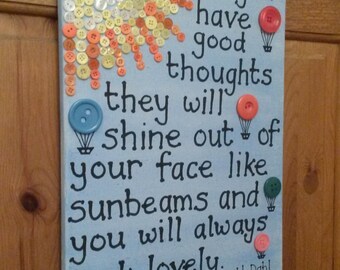 have
good
thoughts
they will
shine out of
your face like
sunbeams and
you will always
lovely
Dahl